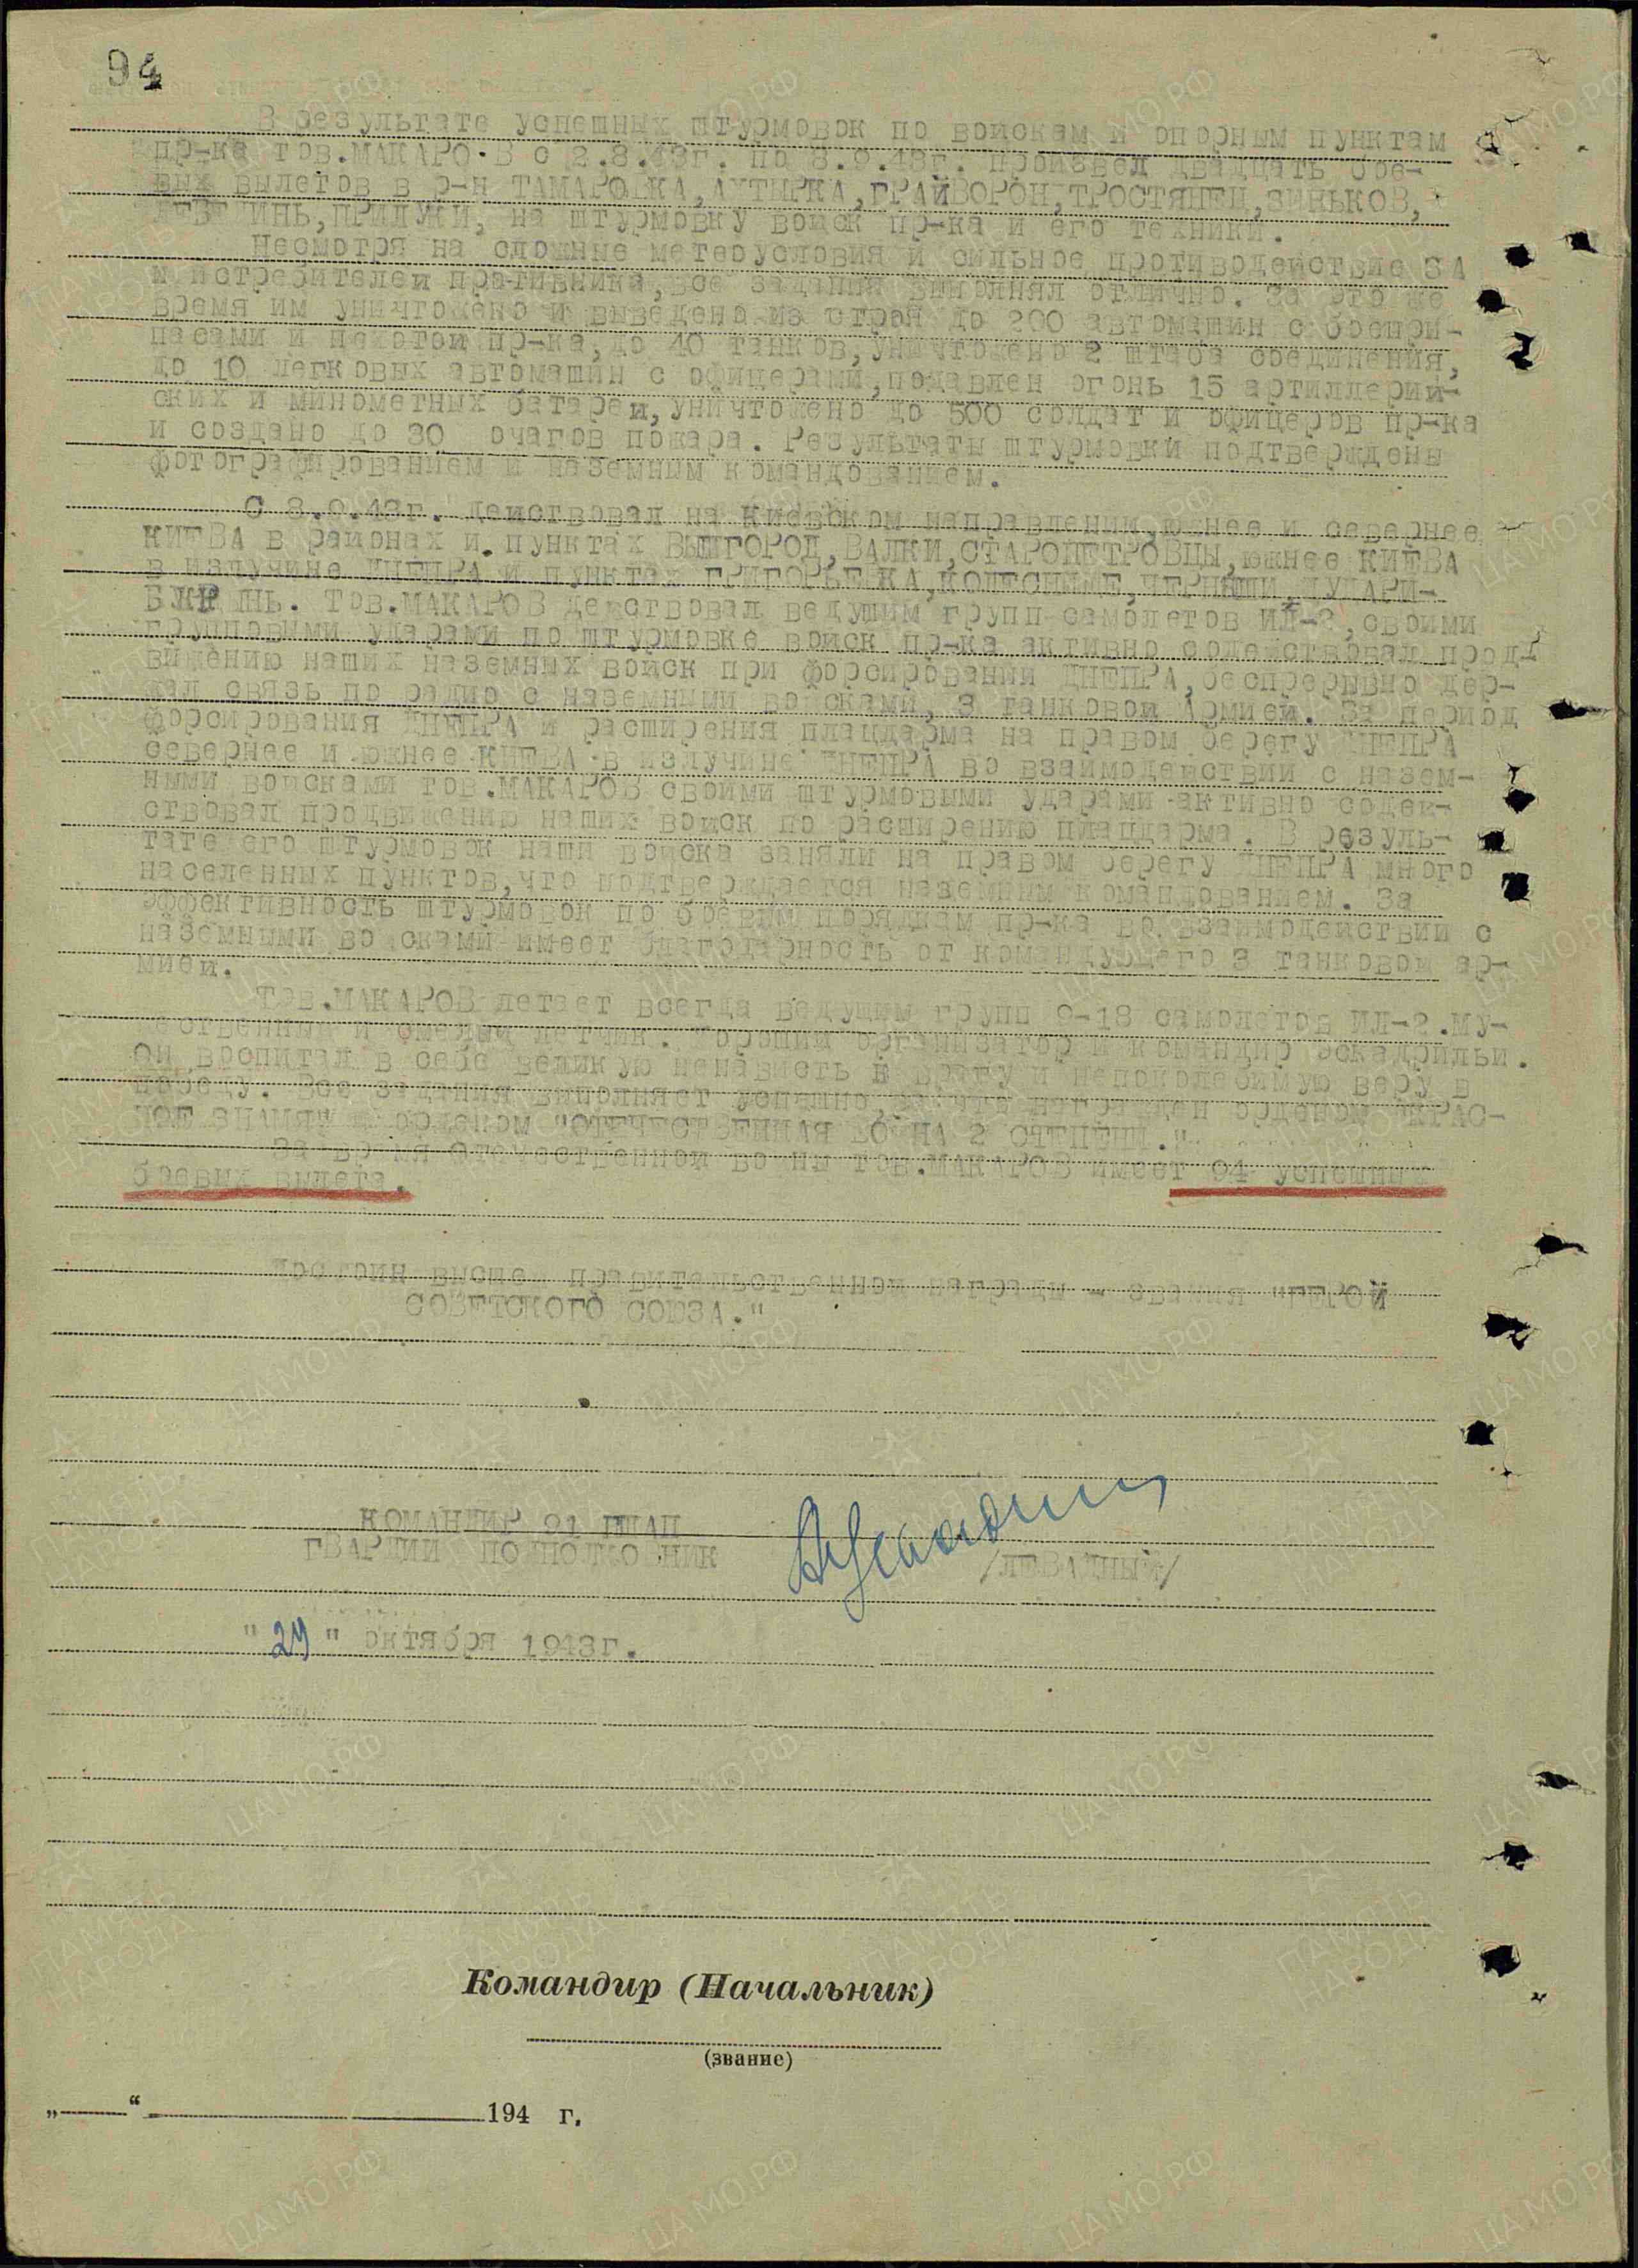 94
В результате успешных штурмовок по войскам и опорным пунктам
пр-ка тов.МАКАРО.В с 2.8.43г. по 8.9.43г. произвел двадцать бое-
вых вылетов в р-н ТАМАРО КА, АХТЫРКА, ГРАЙВОРОН, ТРОСТЯНЕЦ, ЗИНЬКОВ,
ИНЬ, ПРИЛУКИ, на штурмовку войск пр-ка и его техники.
Несмотря на сложные метеоусловия и сильное противодействие ЗА
и истребителей противника, все задания выполнял отлично. За это же
время им уничтожено и выведено из строя до 200 автомашин с боепри-
пасами и пехотой пр-ка, до 40 танков, уничтожено 2 штаба соединения,
до 10 легковых автомашин с офицерами, подавлен огонь 15 артиллерий-
ских и минометных батарей, уничтожено до 500 солдат и офицеров пр-ка
и создано до 30 очагов пожара. Результаты штурмовки подтверждены
фотографированием и наземным командованием.
С 8.9.43г. действовал на Киевском направлении, южнее и севернее
КИЕВА в районах и. пунктах ВЫШГОРОД, ВАЛКИ, СТАРОПЕТРОВЦЫ, южнее КИЕВА
в излучине ДНЕПРА и пунктах ГРИГОРЬЕ КА, ЧЕРНЫШИ, ДУДАРИ-
Тов.МАКАРОВ действовал ведущим групп самолетов ИЛ-2, своими
групповыми ударами по штурмовке войск пр-ка активно содействовал прод-
вижению наших наземных войск при форсировании ДНЕПРА, беспрерывно дер-
жал связь по радио с наземными войсками, 3 танковой Армией. За период
форсирования ДНЕПРА и расширения плацдарма на правом берегу ДНЕПРА
севернее и южнее КИЕВА в излучине ДНЕПРА во взаимодействии с назем-
ными войсками тов.МАКАРОВ своими штурмовыми ударами активно содей-
ствовал продвижению наших войск по расширению плацдарма. В резуль-
тате его штурмовок наши войска заняли на правом берегу ДНЕПРА много
населенных пунктов, что подтверждается наземным командованием. За
эффективность штурмовок по боевым порядкам пр-ка во взаимодействии с
наземными войсками имеет благодарность от командующего 3 танковой ар-
мией.
Тов.МАКАРОВ летает всегда ведущим групп 9-18 самолетов ИЛ-2. Му-
ственный и смелый летчик. Хороший организатор и командир эскадрильи.
Он воспитал в себе великую ненависть к врагу и непоколебимую веру в
победу. Все задания выполняет успешно, за что награжден орденом "КРАС-
НОЕ ЗНАМЯ" и орденом "ОТЕЧЕСТВЕННАЯ ВО НА 2 СТЕПЕНИ."
За время Отечественной войны тов.МАКАРОВ имеет 94 успешных
боевых вылета.
Достоин высшей правительственной награды - звания "ГЕРОЙ
СОВЕТСКОГО СОЮЗА."
КОМАНДИР 91 ГШАП
ГВАРДИИ ПОДПОЛКОВНИК
/ЛЕВАДНЫЙ/
"29" октября 1943г.
Командир (Начальник)
(звание)
„ “ 194 г.